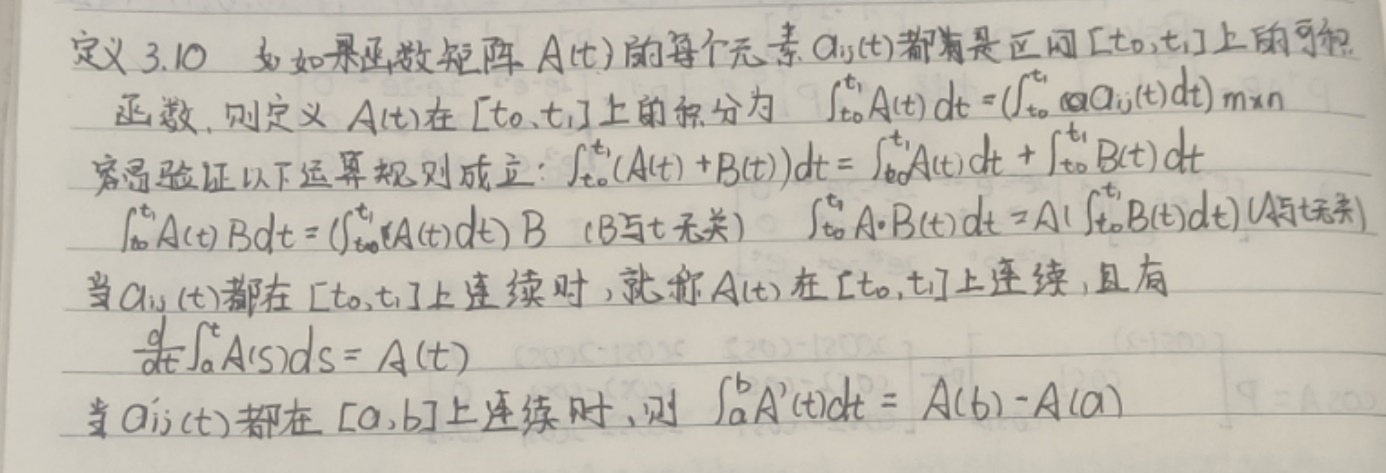 定义3.10 如果函数矩阵 A(t) 的每个元素 aᵢⱼ(t) 都是区间 [t₀,t₁] 上的可积
函数,则定义 A(t) 在 [t₀,t₁] 上的积分为 ∫ₜ₀^t₁ A(t)dt = (∫ₜ₀^t₁ aᵢⱼ(t)dt) m×n
容易验证以下运算规则成立: ∫ₜ₀^t₁ (A(t)+B(t))dt = ∫ₜ₀^t₁ A(t)dt + ∫ₜ₀^t₁ B(t)dt
∫ₜ₀^t₁ A(t)Bdt = (∫ₜ₀^t₁ A(t)dt)B (B与t无关) ∫ₜ₀^t₁ A·B(t)dt = A(∫ₜ₀^t₁ B(t)dt) (A与t无关)
当 aᵢⱼ(t) 都在 [t₀,t₁] 上连续时,就称 A(t) 在 [t₀,t₁] 上连续,且有
d/dt ∫ₐ^t A(s)ds = A(t)
当 a'ᵢⱼ(t) 都在 [a,b] 上连续时,则 ∫ₐ^b A'(t)dt = A(b)-A(a)